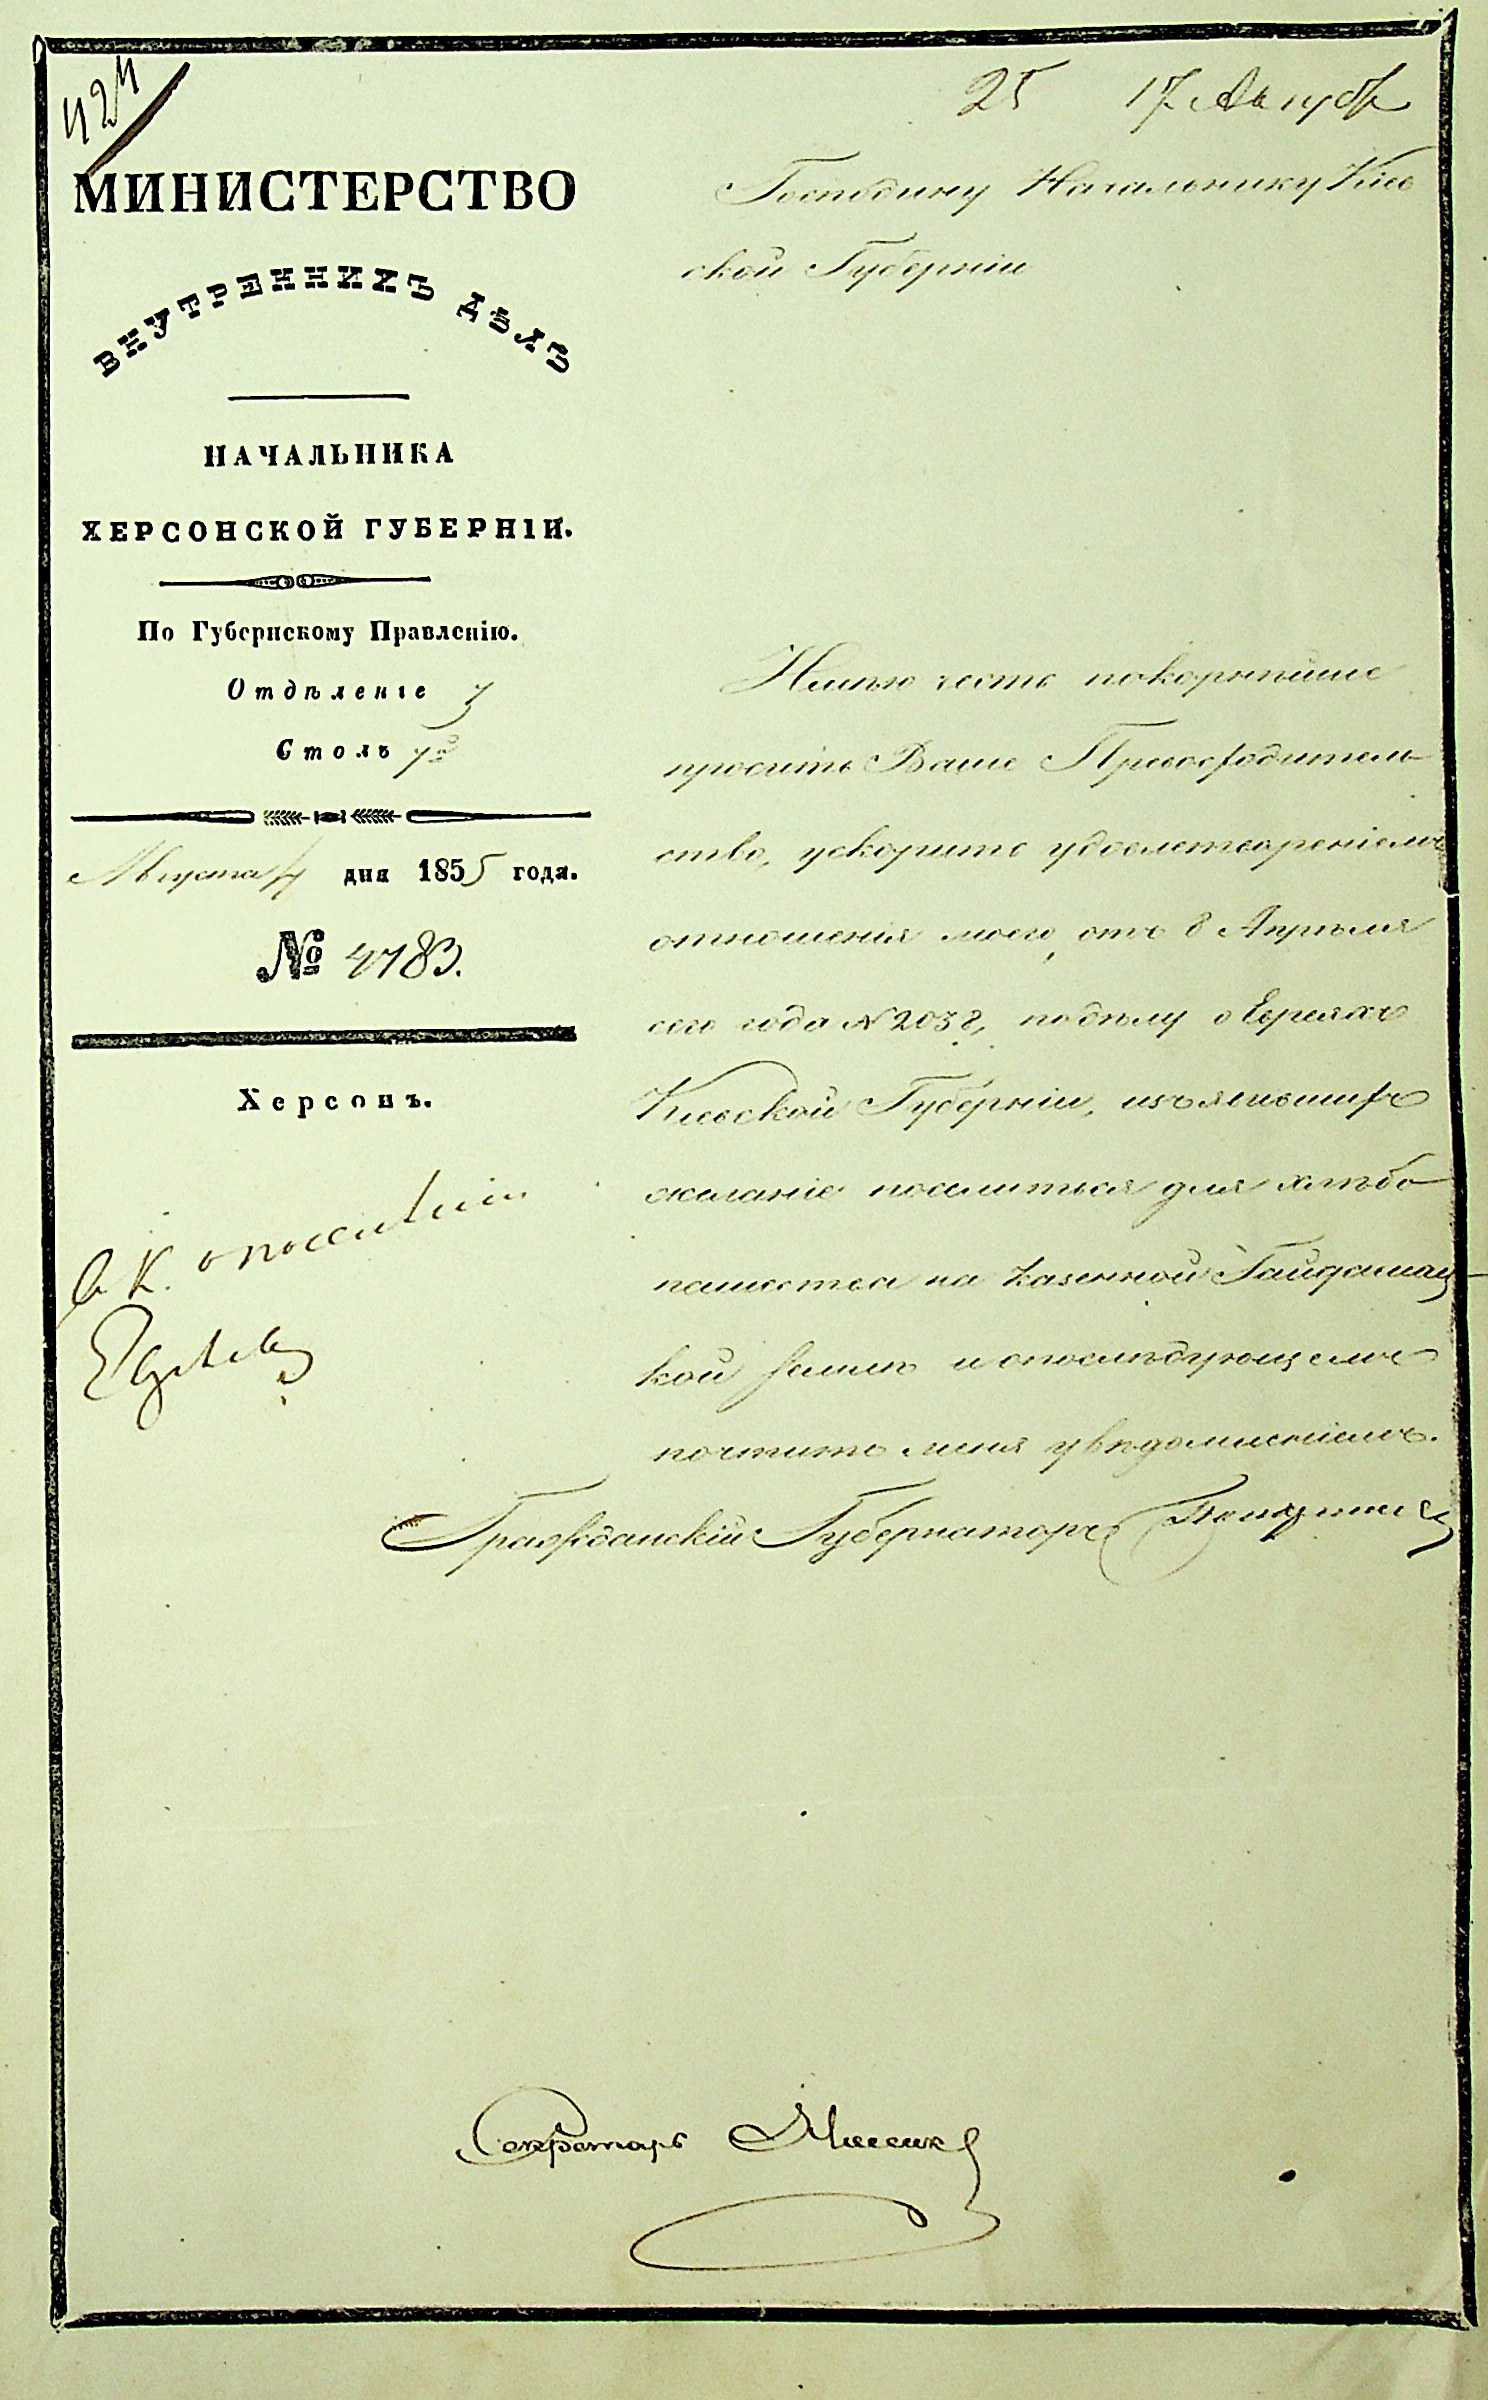 424
25 17 Августа
МИНИСТЕРСТВО
ВНУТРЕННИХЪ ДѢЛЪ
НАЧАЛЬНИКА
ХЕРСОНСКОЙ ГУБЕРНІИ.
По Губернскому Правленію.
Отдѣленіе 3
Столъ
Августа 4 дня 1855 года.
№ 4783.
Херсонъ.
о поселеніи
Евреевъ
Господину Начальнику Кіев
ской Губерніи
Имѣю честь покорнѣйше
просить Ваше Превосходитель-
ство, ускорить удовлетвореніемъ
отношенія моего, отъ 8 Апрѣля
сего года № 2038, по дѣлу о Евреяхъ
Кіевской Губерніи, изъявившихъ
желаніе поселиться для хлѣбо
пашества на казенной Гайдамац-
кой землѣ и о послѣдующемъ
почтить меня увѣдомленіемъ.
Гражданскій Губернаторъ
Секретарь